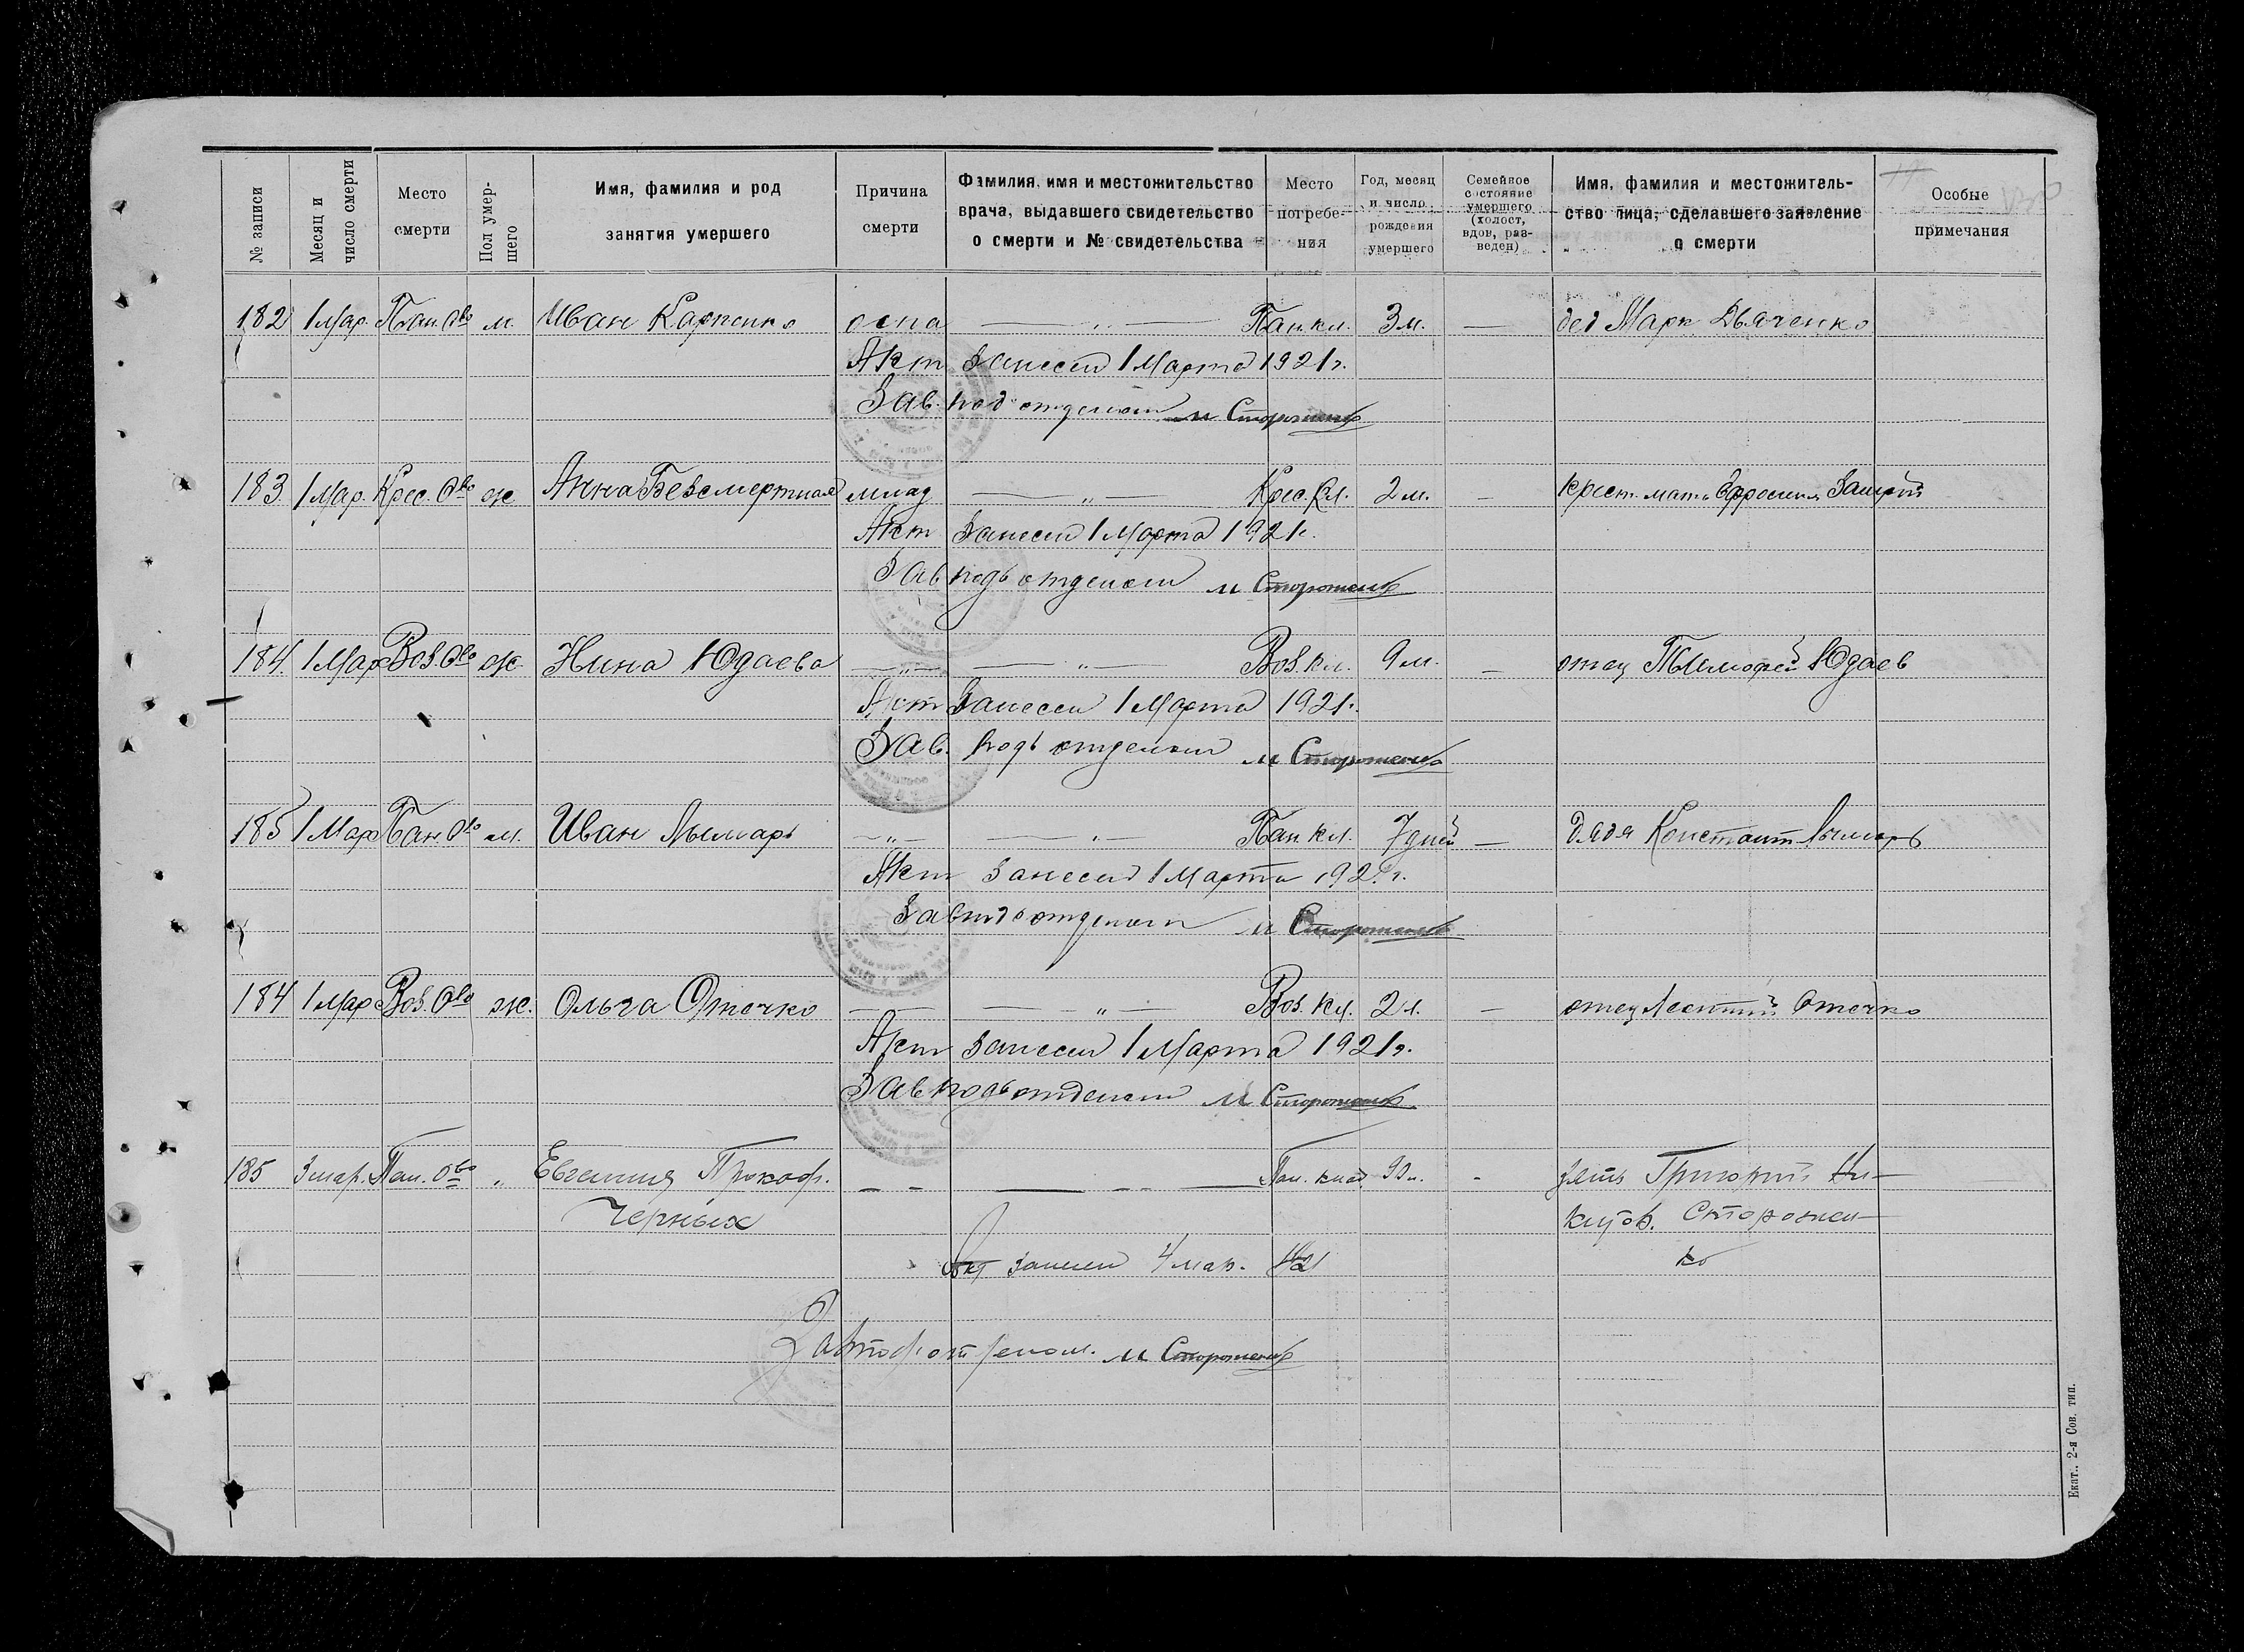 № записи
Месяц и число смерти
Место смерти
Пол умершего
Имя, фамилия и род занятия умершего
Причина смерти
Фамилия, имя и местожительство врача, выдавшего свидетельство о смерти и № свидетельства
Место погребения
Год, месяц и число рождения умершего
Семейное состояние умершего (холост, вдов, разведен)
Имя, фамилия и местожительство лица, сделавшего заявление о смерти
Особые примечания
182 1 Мар. Пан. О-во м. Иван Карпенко оспа — „ — Пан. кл. 3 м. — дед Марк Дьяченко
Акт занесен 1 Марта 1921 г.
Зав. под отделом М Стороженко
183 1 Мар. Крес. О-во ж Анна Безсмертная млад — „ — Крес. Кл. 2 м. — крест. мать Ефросиния
Акт занесен 1 Марта 1921 г.
Зав подъ отделом М Стороженко
184 1 Мар Воз. О-во ж Нина Юдаева — „ — — „ — Воз. Кл. 9 м. — отец Тимофей Юдаев
Акт занесен 1 Марта 1921 г.
Зав. подъ отделом М Стороженко
185 1 Мар Пан. О-во м. Иван Лымарь — „ — — „ — Пан. кл. 7 дней — дядя Констант Лымарь
Акт занесен 1 Марта 1921 г.
Зав подъ отделом М Стороженко
184 1 Мар Воз. О-во ж. Ольга Отечко — — — „ — Воз. Кл. 2 л. — отец Леонтий Отечко
Акт занесен 1 Марта 1921 г.
Зав подъ отделом М Стороженко
185 3 мар. Пан. О-во „ Евгения Прокоф. — — — — — — Пан. клад. - зять Григорий Ни-
Черных китов. Сторожен-
Акт занесен 4 мар. 1921 ко
Завподотделом. М Стороженко
Екат.. 2-я Сов. тип.